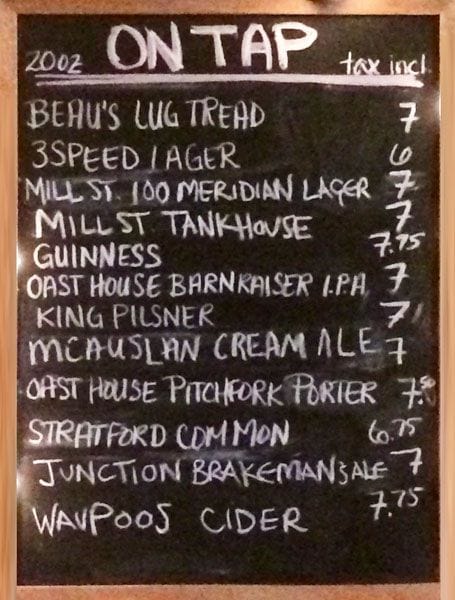 ON TAP
20oz tax incl.
BEAU'S LUG TREAD 7
3SPEED LAGER 6
MILL ST. 100 MERIDIAN LAGER 7
MILL ST TANKHOUSE 7
GUINNESS 7.75
OAST HOUSE BARNRAISER I.P.A. 7
KING PILSNER 7
MCAUSLAN CREAM ALE 7
OAST HOUSE PITCHFORK PORTER 7.50
STRATFORD COMMON 6.75
JUNCTION BRAKEMAN'S ALE 7
WAUPOOS CIDER 7.75